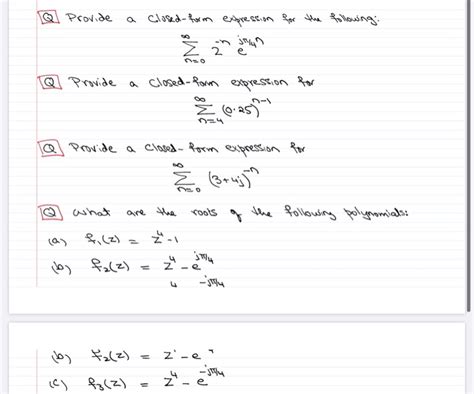 Q Provide a closed-form expression for the following:
∞
∑ 2^{-n} e^{jπ/4 n}
n=0
Q Provide a closed-form expression for
∞
∑ (0.25)^{n-1}
n=4
Q Provide a closed-form expression for
∞
∑ (3+4j)^{-n}
n=0
Q What are the roots of the following polynomials:
(a) f₁(z) = z⁴-1
(b) f₂(z) = z⁴ - e^{jπ/4}
4 -jπ/4
(b) f₂(z) = z - e
(c) f₃(z) = z⁴ - e^{-jπ/4}